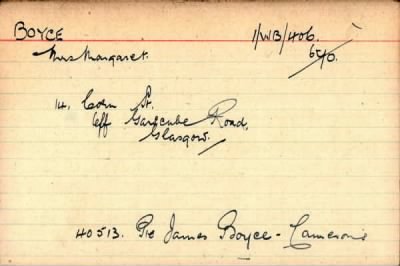 BOYCE 1/WB/406.
Mrs Margaret.
14, Corn St.
Off Garscube Road,
Glasgow.
40513. Pte James Boyce - Camerons